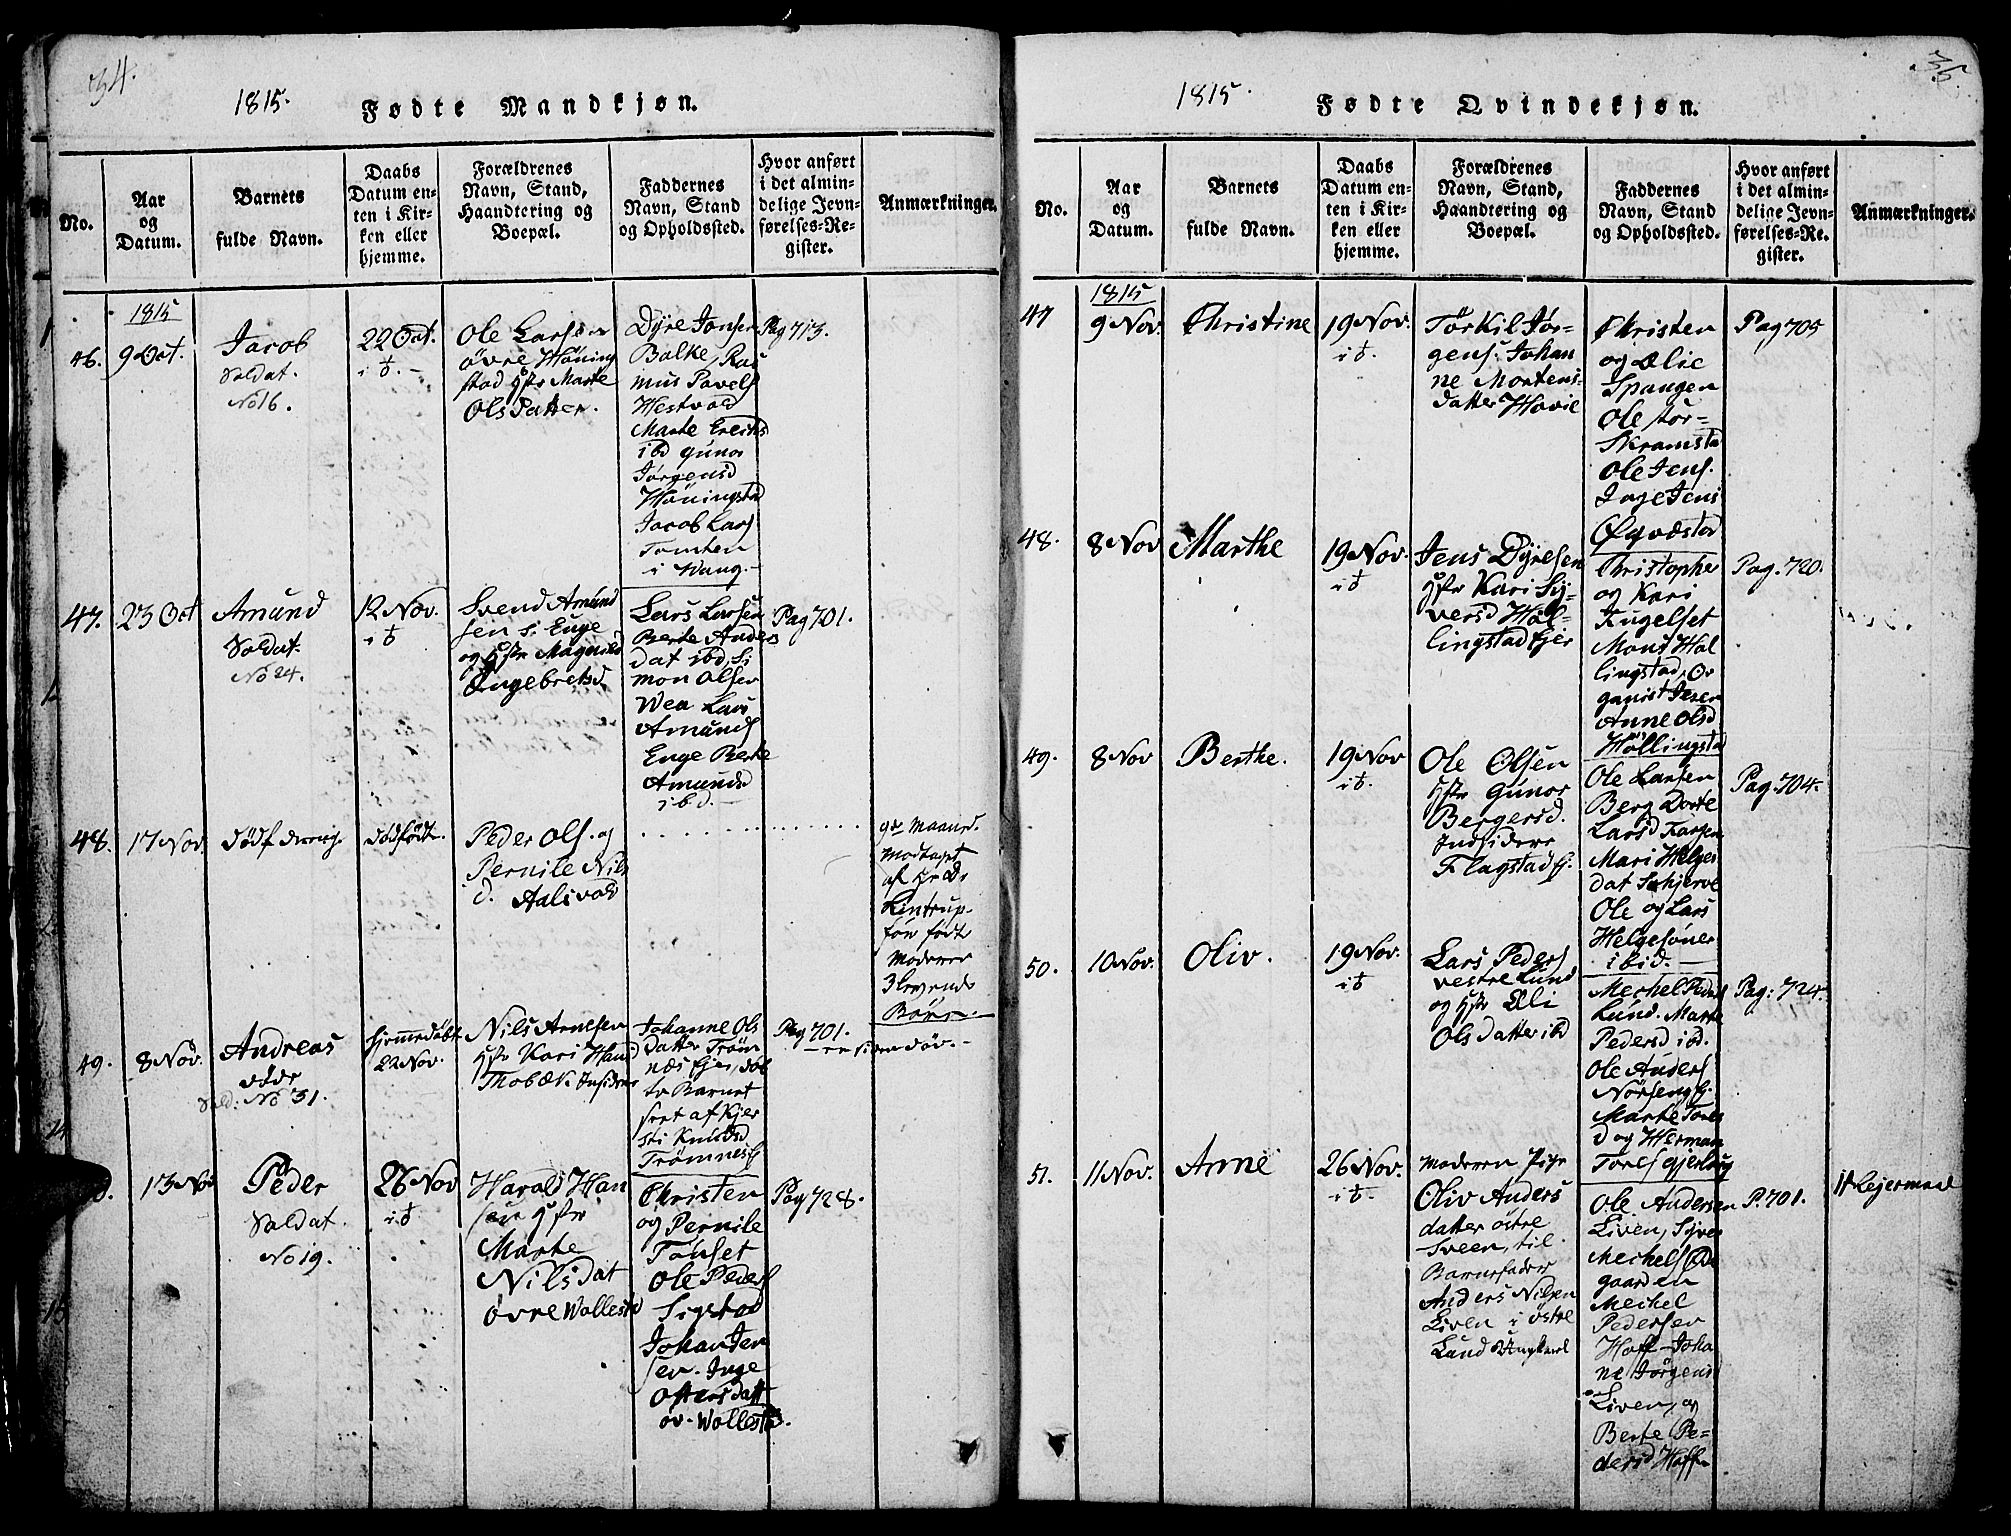 34.
1815. Fødte Mandkjøn.
No.
Aar
og
Datum.
Barnets
fulde Navn.
Daabs
Datum en-
ten i Kir-
ken eller
hjemme.
Forældrenes
Navn, Stand,
Haandtering og
Boepæl.
Faddernes
Navn, Stand
og Opholdssted.
Hvor anført
i det almin-
delige Jevn-
førelses-Re-
gister.
Anmærkninger.
1815
46.
9 Oct.
Jacob
Soldat.
No 16.
22 Oct.
i b.
Ole Larsen
øvre Høning
stad Hstr Marte
Ols Datter.
Dyre Jonsen
Balke, Ras
mus Povels
Westvold
Marte Erichs
ibd Gunor
Jørgensd
Høningstad
Jacob Lars
Tomten
i Wang.
Pag 713.
47.
23 Oct
Amund
Soldat.
No 24.
12 Nov.
i b
Svend Amund
sen i Enge
og Hstr Magnild
Engebretsd.
Lars Larsen
Berte Anders
dat ibd, Si
mon Olsen
Wea Lars
Amunds
Enge Berte
Amundsd
ibd.
Pag 701.
48.
17 Nov.
dødf dreng.
dødfødt.
Peder Ols. og
Pernile Nils
d. Aalsvold
9de Maaned.
Modtaget
af
Lintrup.
før født
Moderen
3 levende
Børn.
49.
8 Nov.
Andreas
døde
Sold: No 31.
hjemmedøbt
22 Nov.
Nils Arnesen
Hstr Kari Hansd
Thobæk Insidere
Johanne Ols
datter Trøm
næs Ejer, døb
te Barnet
sret af Kjer
sti Knudsd
Trømnes
Pag 701.
er siden død.
13 Nov
Peder
Soldat.
No 19.
26 Nov
i b
Harald Han
sen Hstr
Marte
Nilsdat
øvre Wollestd
Christen
og Pernile
Tønset
Ole Peders
Sigstad
Johan Jen
sen. Inge
Ostensdatt
øv. Wollestd.
Pag 728.
35.
1815. Fødte Qvindekjøn.
No.
Aar
og
Datum.
Barnets
fulde Navn.
Daabs
Datum en-
ten i Kir-
ken eller
hjemme.
Forældrenes
Navn, Stand,
Haandtering og
Boepæl.
Faddernes
Navn, Stand
og Opholdssted.
Hvor anført
i det almin-
delige Jevn-
førelses-Re-
gister.
Anmærkninger.
1815
47
9 Nov.
Christine
19 Nov.
i b.
Torkil Jør-
gens. Johan
ne Mortens-
datter Hovie
Christen
og Elie
Spangen
Ole tor-
Skramstad
Ole Jens.
Inge Jens
Øqvæstad
Pag 705
48.
8 Nov
Marthe
19 Nov.
i b
Jens Dyresen
Hstr Kari Sy-
versd Høl-
lingstad Ejer
Christopher
og Kari
Ingelset
Mons Høl
lingstad, Or
ganist Jesen
Anne Olsd
Høllingstad
Pag. 720.
49.
8 Nov
Berthe.
19 Nov
i b.
Ole Olsen
Hstr Gunor
Bergersd.
Indsidere
Flagstad Ej.
Ole Larsen
Berg Dorte
Larsd Karsen
Mari Helges
dat Schjerve
Ole og Lars
Helgesøner
ibid.
Pag. 704.
50.
10 Nov.
Oliv.
19 Nov.
i b
Lars Peders
vestre Lund
og Hstr Eli
Olsdatter ibd
Mechel Peders
Lund. Marte
Pedersd ibd.
Ole Anders
Nørseng Ej.
Marte Tores
d og Herman
Tores Gjerlaug
Pag: 724.
51.
11 Nov.
Anne
26 Nov.
i b.
Moderen Pige
Oliv Anders
datter østre
Sveen, til
Barnefader
Anders Nilsen
Liven i østre
Lund Ungkarl
Ole Andersen
Liven, Syver
Mechels Ød
gaarden
Mechel
Pedersen
Hoff. Joha
ne Jørgensd
Liven, og
Berte Pe-
dersd Hoff.
P. 701.
1t Lejermaal